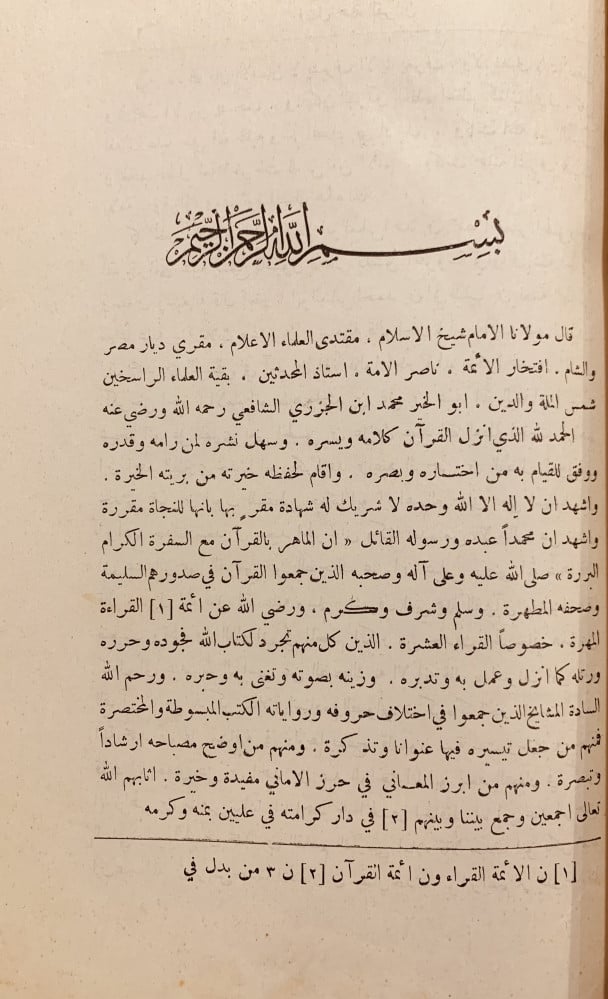 بسم الله الرحمن الرحيم
قال مولانا الامام شيخ الاسلام ، مقتدى العلماء الاعلام ، مقري ديار مصر
والشام . افتخار الأئمة ، ناصر الامة ، استاذ المحدثين . بقية العلماء الراسخين
شمس الملة والدين ، ابو الخير محمد ابن الجزري الشافعي رحمه الله ورضي عنه
الحمد لله الذي انزل القرآن كلامه ويسره . وسهل نشره لمن رامه وقدره
ووفق للقيام به من اختاره وبصره . واقام لحفظه خيرته من بريته الخيرة .
واشهد ان لا إله الا الله وحده لا شريك له شهادة مقر بها بانها للنجاة مقررة
واشهد ان محمداً عبده ورسوله القائل « ان الماهر بالقرآن مع السفرة الكرام
البررة » صلى الله عليه وعلى آله وصحبه الذين جمعوا القرآن في صدورهم السليمة
وصحفه المطهرة . وسلم وشرف وكرم ، ورضي الله عن ائمة [١] القراءة
المهرة . خصوصاً القراء العشرة . الذين كل منهم تجرد لكتاب الله فجوده وحرره
ورتله كما انزل وعمل به وتدبره . وزينه بصوته وتغنى به وحبره . ورحم الله
السادة المشايخ الذين جمعوا في اختلاف حروفه ورواياته الكتب المبسوطة والمختصرة
فمنهم من جعل تيسيره فيها عنوانا وتذكرة . ومنهم من اوضح مصباحه ارشاداً
وتبصرة . ومنهم من ابرز المعاني في حرز الاماني مفيدة وخيرة . اثابهم الله
تعالى اجمعين وجمع بيننا وبينهم [٢] في دار كرامته في عليين بمنه وكرمه
[١] ن الائمة القراء ون ائمة القرآن [٢] ن ٣ من بدل في